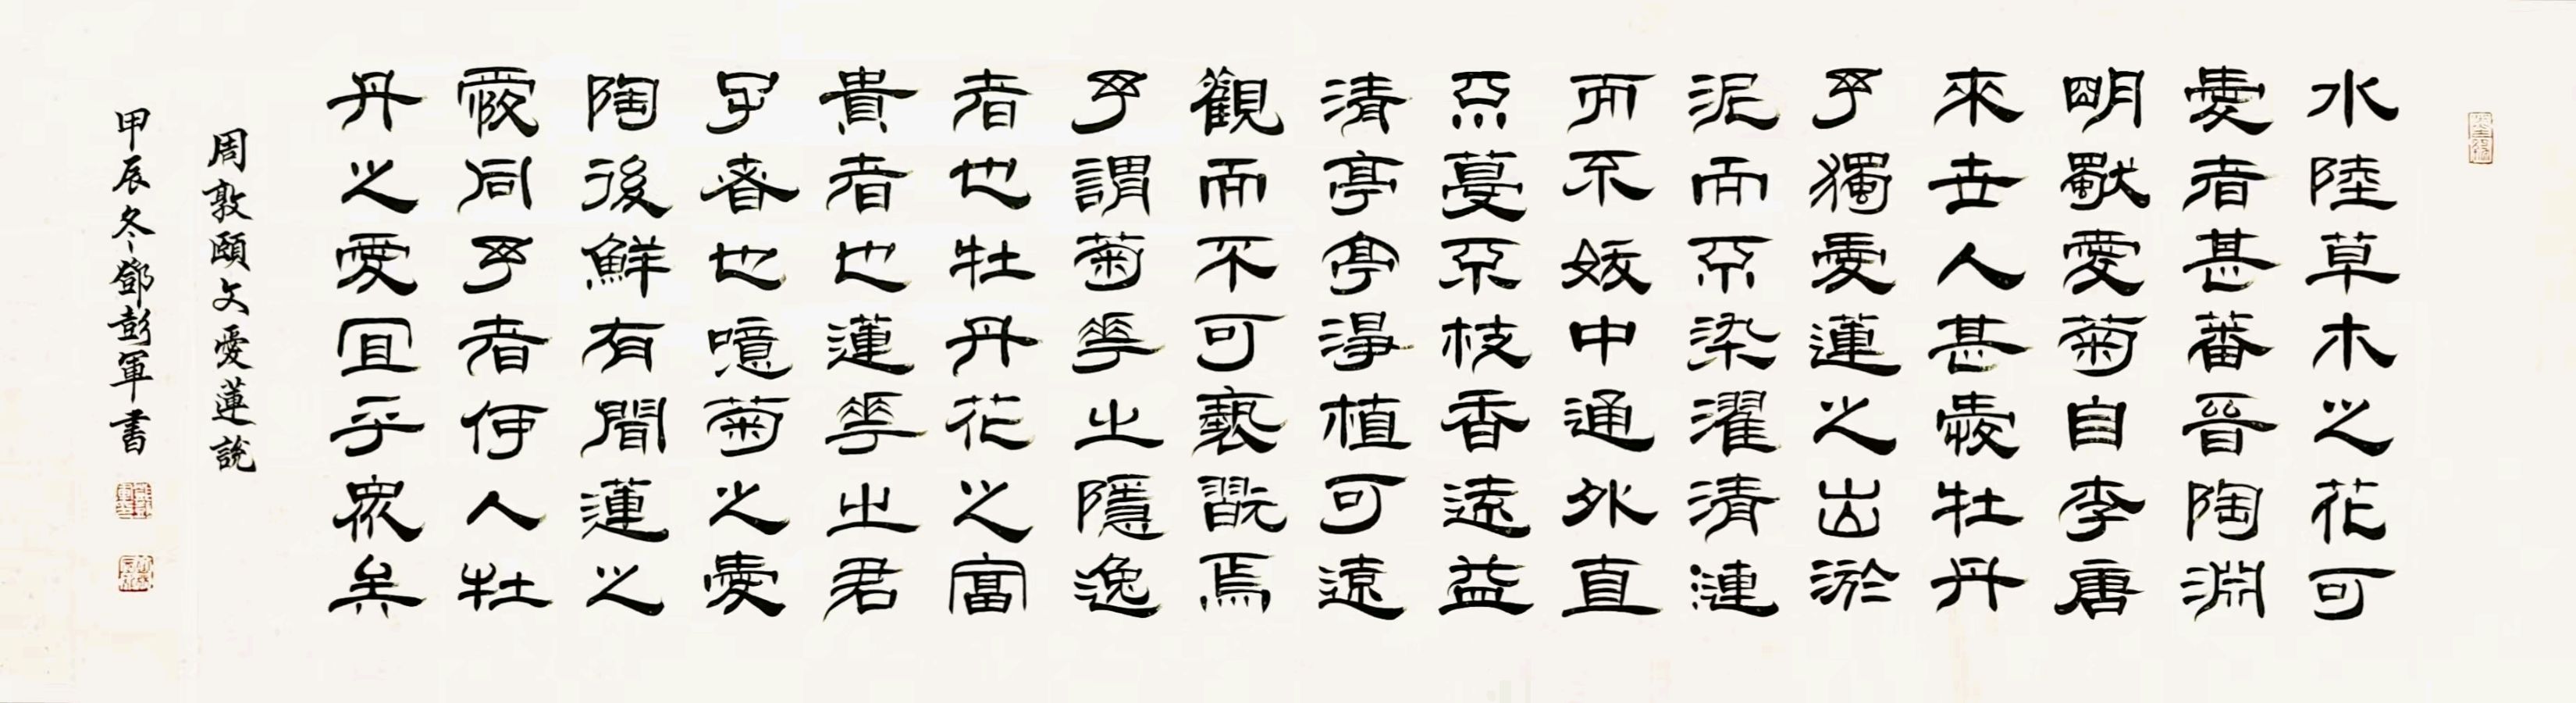 水陸草木之花可
愛者甚蕃晉陶淵
明獨愛菊自李唐
來世人甚愛牡丹
予獨愛蓮之出淤
泥而不染濯清漣
而不妖中通外直
不蔓不枝香遠益
清亭亭淨植可遠
觀而不可褻翫焉
予謂菊華之隱逸
者也牡丹花之富
貴者也蓮華之君
子者也噫菊之愛
陶後鮮有聞蓮之
愛同予者何人牡
丹之愛宜乎眾矣
周敦頤文愛蓮說
甲辰冬鄧彭軍書